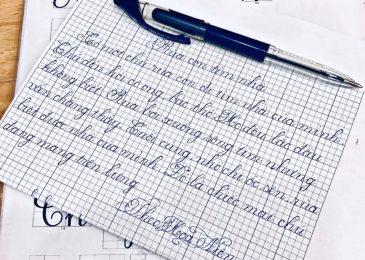 Rùa con tìm nhà
Có một chú rùa con đi tìm nhà của mình.
Chú đến hỏi cô ong, bác thỏ. Họ đều lắc đầu
không biết. Rùa ra sông tìm nhưng
vẫn chẳng thấy. Cuối cùng nhờ chị ốc sên, rùa
biết được nhà của mình. Đó là chiếc mai chú
đang mang trên lưng.